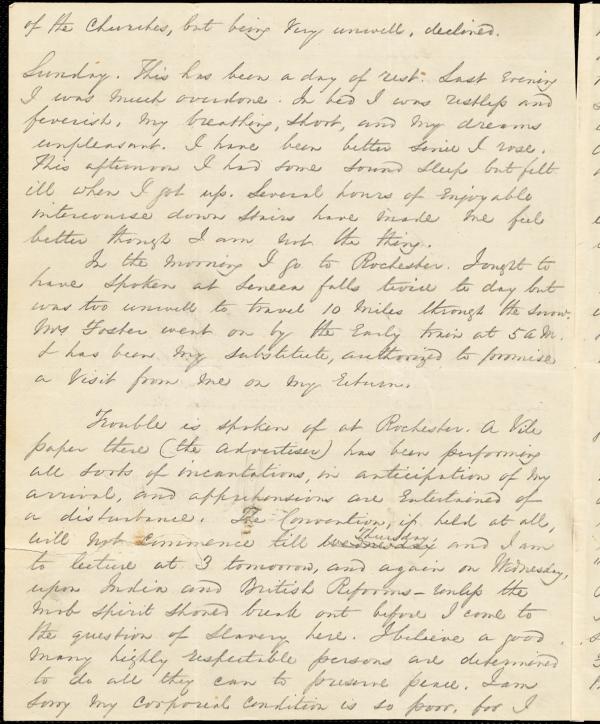 of the Churches, but being very unwell, declined.
Sunday. This has been a day of rest. Last Evening
I was much overdone. In bed I was restless and
feverish, my breathing, short, and my dreams
unpleasant. I have been better since I rose.
This afternoon I had some sound sleep but felt
ill when I got up. Several hours of Enjoyable
intercourse down stairs have made me feel
better though I am not the thing.
In the morning I go to Rochester. I ought to
have spoken at Seneca falls twice to day but
was too unwell to travel 10 miles through the snow.
Mrs Foster went on by the Early train at 5 A.M.
& has been my substitute, authorized to promise
a visit from me on my return.
Trouble is spoken of at Rochester. A Vile
paper there (the Advertiser) has been performing
all sorts of incantations, in anticipation of my
arrival, and apprehensions are Entertained of
a disturbance. The Convention, if held at all,
will not commence till Wednesday Thursday, and I am
to lecture at 3 tomorrow, and again on Wednesday,
upon India and British Reforms – unless the
mob spirit should break out before I come to
the question of slavery here. I believe a good
many highly respectable persons are determined
to do all they can to preserve peace. I am
sorry my corporeal condition is so poor, for I